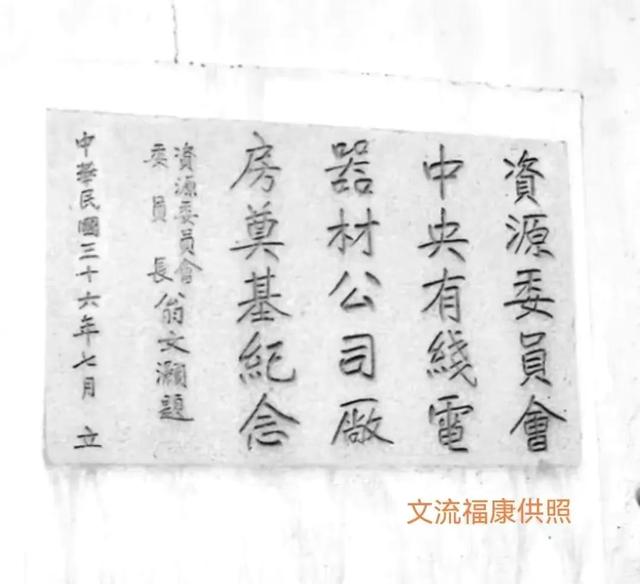 資源委員會
中央有綫電
器材公司廠
房奠基紀念
資源委員會
委員長翁文灝題
中華民國三十六年七月立
文流福康供照